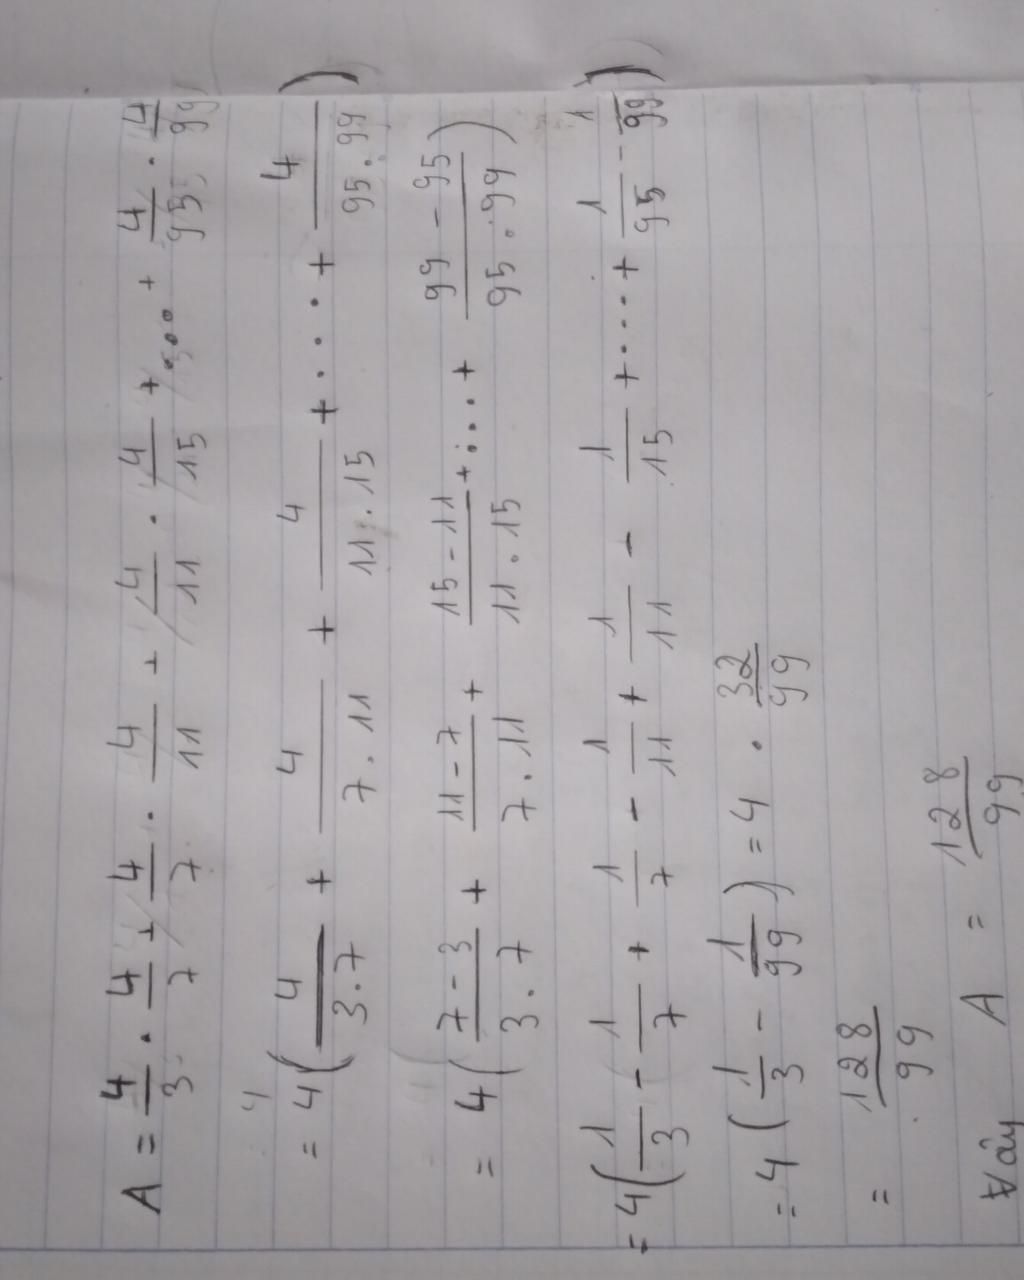 A = 4/3 . 4/7 + 4/7 . 4/11 + 4/11 . 4/15 + .... + 4/95 . 4/99
= 4 ( 4/3.7 + 4/7.11 + 4/11.15 + .... + 4/95.99 )
= 4 ( 7-3/3.7 + 11-7/7.11 + 15-11/11.15 + .... + 99-95/95.99 )
= 4 ( 1/3 - 1/7 + 1/7 - 1/11 + 1/11 - 1/15 + .... + 1/95 - 1/99 )
= 4 ( 1/3 - 1/99 ) = 4 . 32/99
= 128/99
Vậy A = 128/99